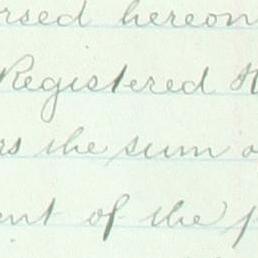 rsed hereon
Registered
rs the sum o
ent of the